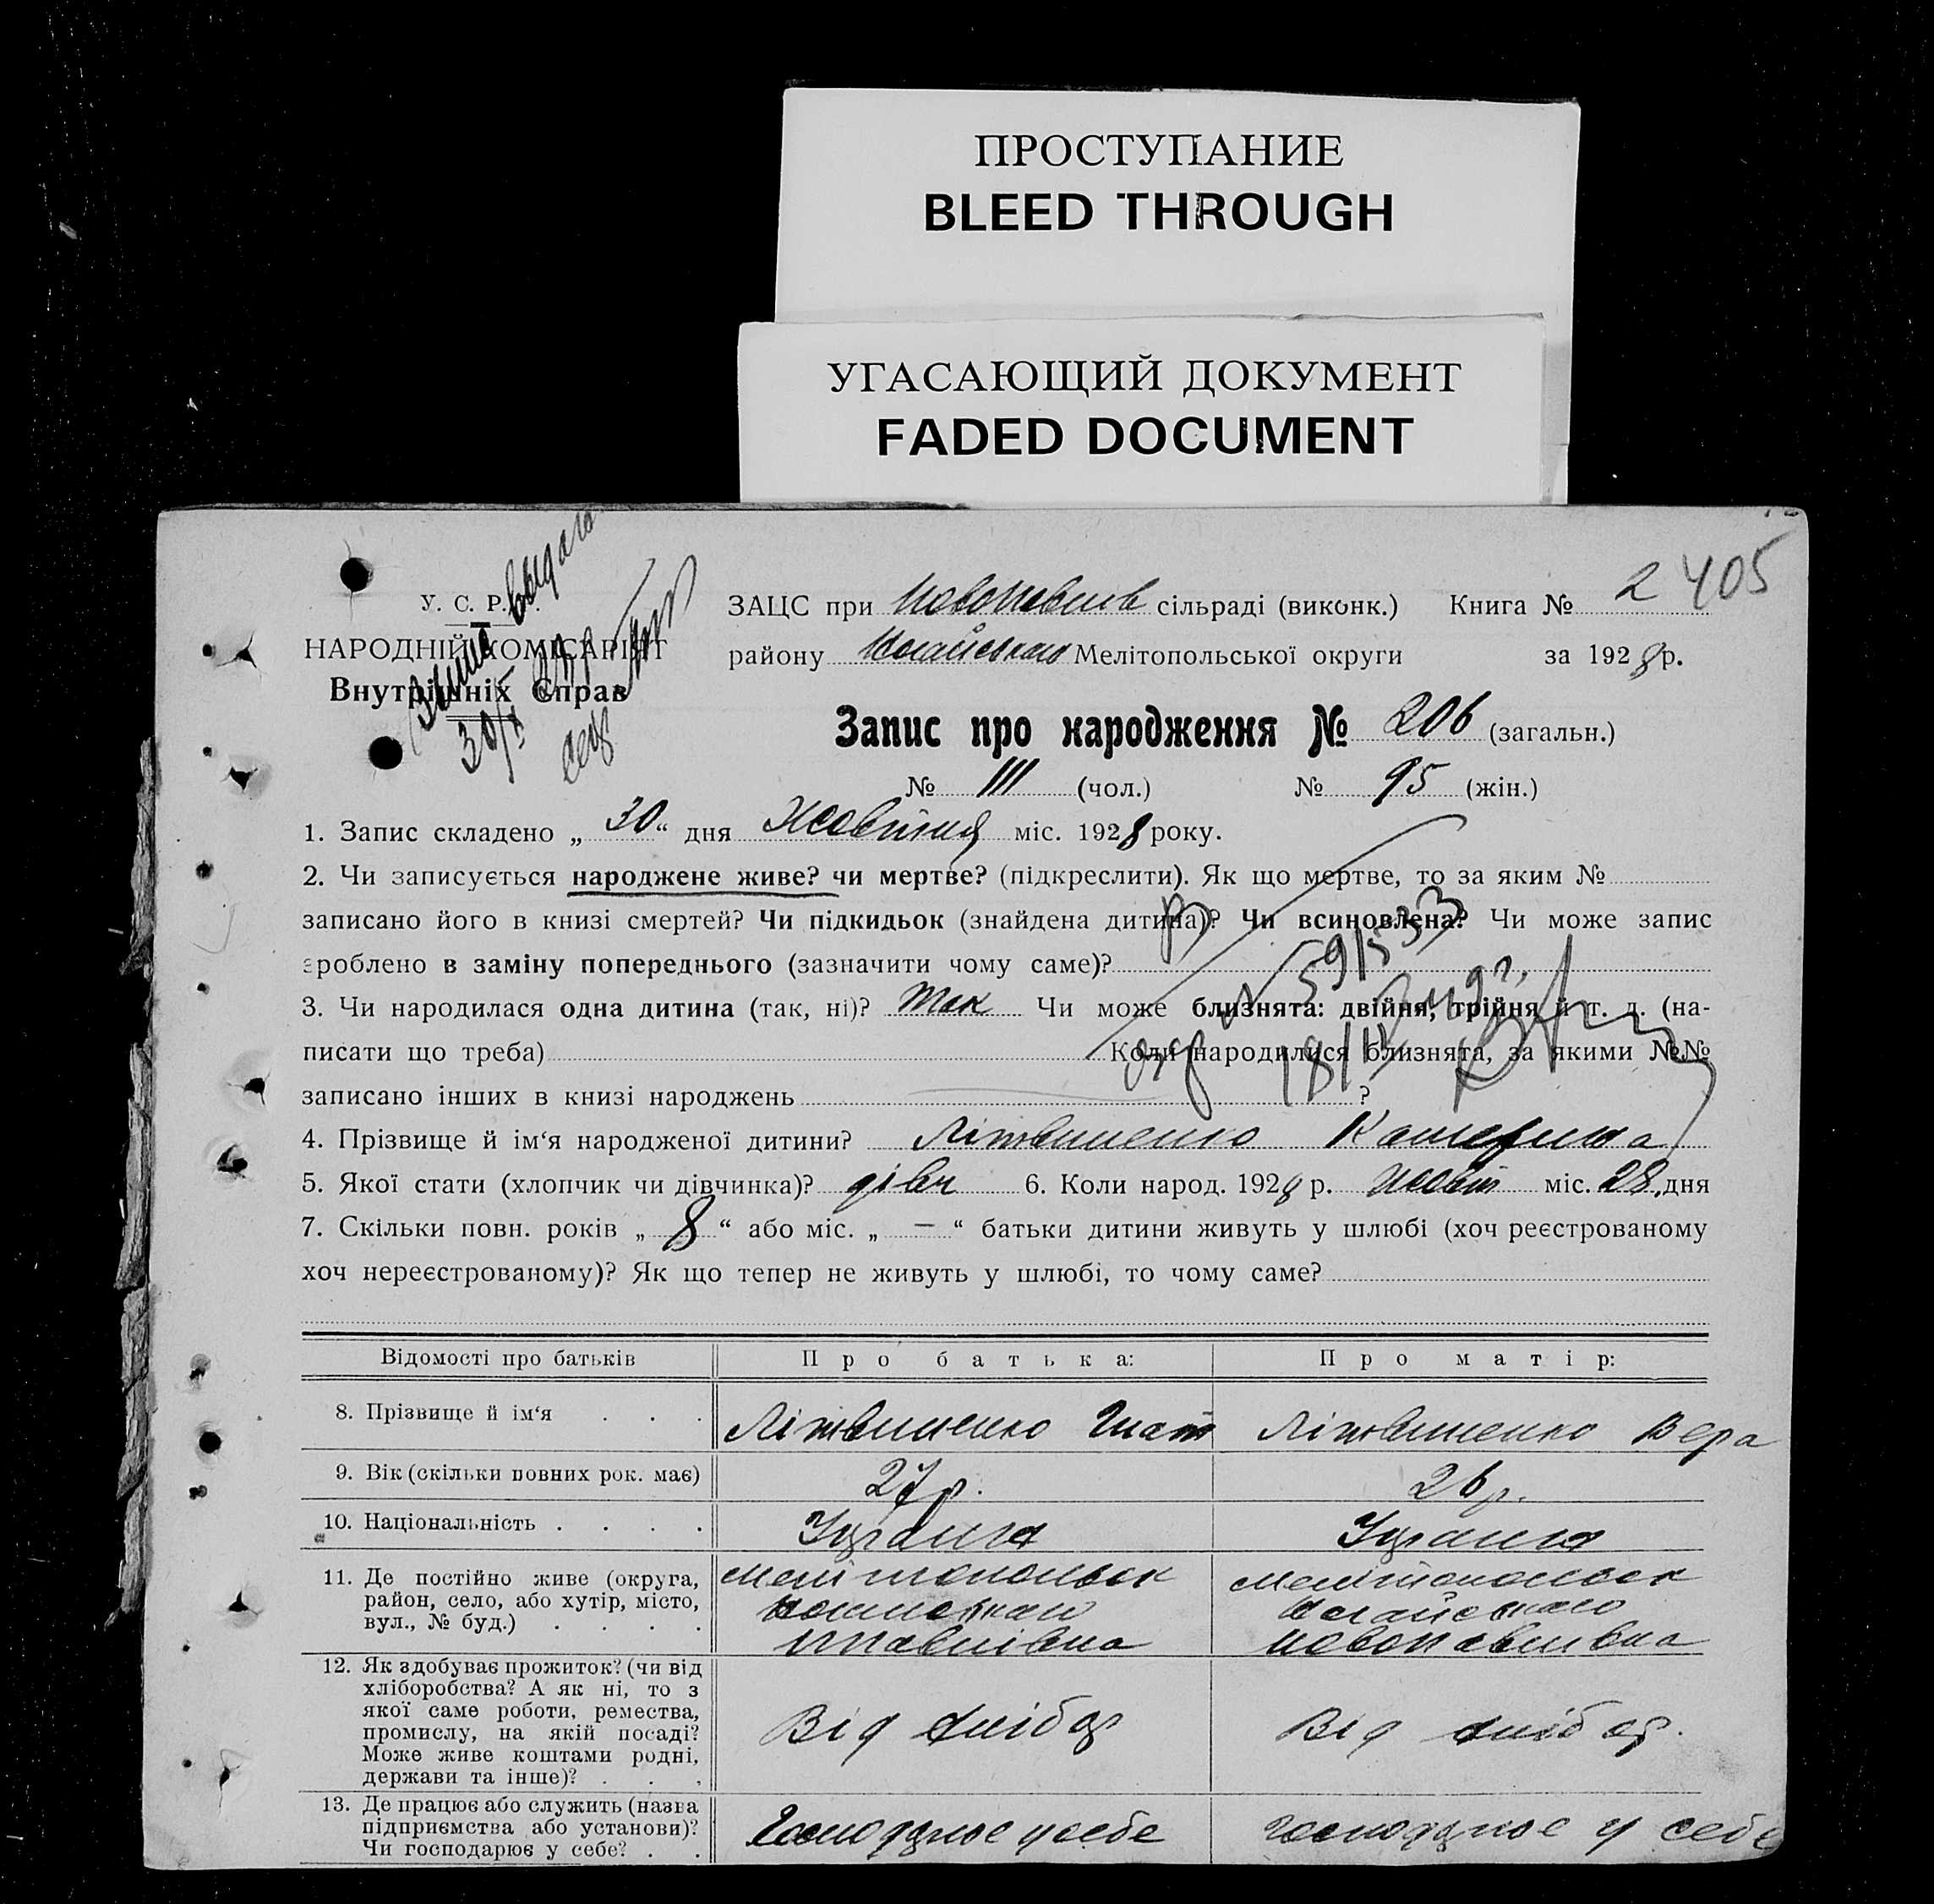 ПРОСТУПАНИЕ
BLEED THROUGH
УГАСАЮЩИЙ ДОКУМЕНТ
FADED DOCUMENT
2 405
У. С. Р. Р.
НАРОДНІЙ КОМІСАРІЯТ
Внутрішніх Справ
ЗАЦС при Новопавлів сільраді (виконк.) Книга №
району Ногайського Мелітопольської округи за 1928 р.
Запис про народження № 206 (загальн.)
№ 111 (чол.) № 95 (жін.)
1. Запис складено „ 30 “ дня Жовтня міс. 1928 року.
2. Чи записується народжене живе? чи мертве? (підкреслити). Як що мертве, то за яким №
записано його в книзі смертей? Чи підкидьок (знайдена дитина)? Чи всиновлена? Чи може запис
зроблено в заміну попереднього (зазначити чому саме)?
3. Чи народилася одна дитина (так, ні)? Так Чи може близнята: двійня, трійня й т. д. (на-
писати що треба) Коли народилися близнята, за якими №№
записано інших в книзі народжень ?
4. Прізвище й ім‘я народженої дитини? Літвиненко Катерина
5. Якої стати (хлопчик чи дівчинка)? дівч 6. Коли народ. 1928 р. Жовт міс. 28 дня
7. Скільки повн. років „ 8 “ або міс. „ — “ батьки дитини живуть у шлюбі (хоч реєстрованому
хоч нереєстрованому)? Як що тепер не живуть у шлюбі, то чому саме?
Відомості про батьків Про батька: Про матір:
8. Прізвище й ім‘я . . . Літвиненко Літвиненко Вера
9. Вік (скільки повних рок. має) 27 р. 26 р.
10. Національність . . . . Украина Украина
11. Де постійно живе (округа, район, село, або хутір, місто, вул., № буд.) . . . . Мелітопольськ Мелітопольськ
Ногайського Ногайського
Новопавлівка
12. Як здобуває прожиток? (чи від хліборобства? А як ні, то з якої саме роботи, ремества, промислу, на якій посаді? Може живе коштами родні, держави та інше)? . . . Від хлібор Від хлібор.
13. Де працює або служить (назва підприємства або установи)? Чи господарює у себе? . . Господарює у себе Господарює у себе